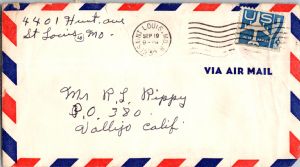 4401 Hunt. ave
St Louis 10 Mo.
SAINT LOUIS, MO.
SEP 19
VIA AIR MAIL
Mr R. L. Rippy
P.O. 380
Vallijo Calif.